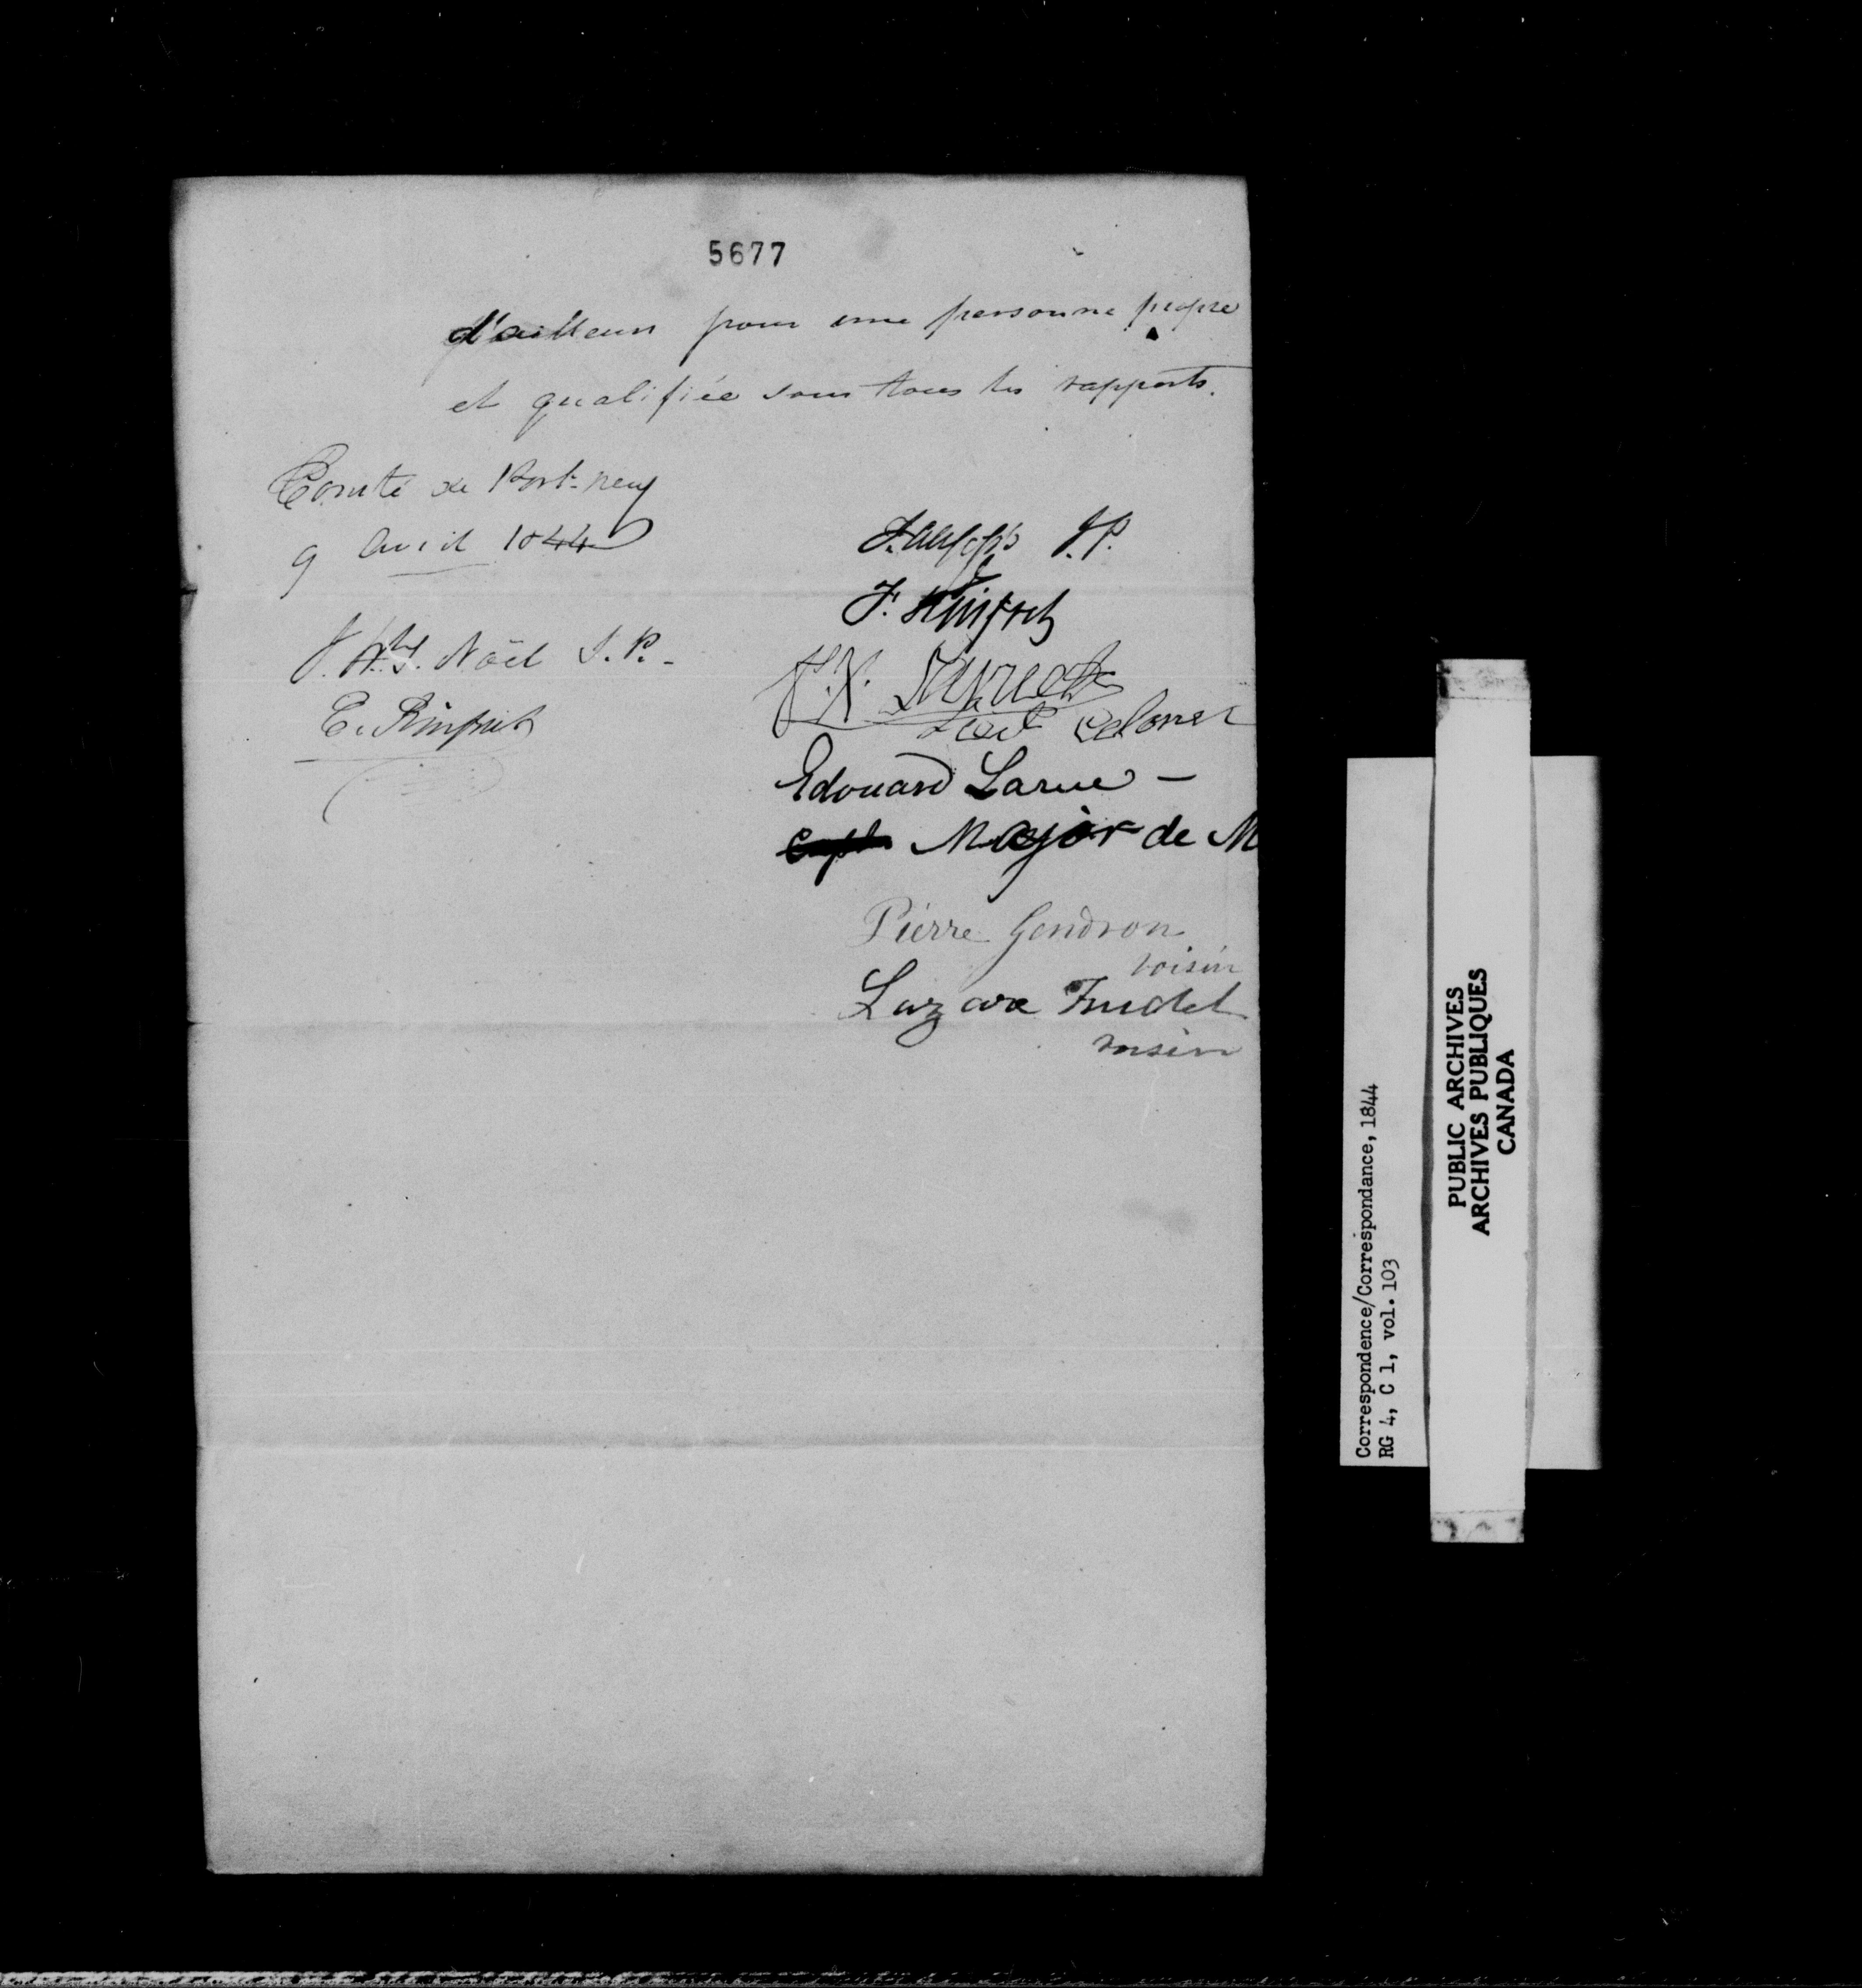 5677
d'ailleurs pour une personne propre
et qualifiée sous tous les rapports.
Comté de Port-neuf
9 Avril 1844
J.P.
F.
Lieut Colonel
J. Noël J.P.
E. Rinfret
Edouard Larue -
Major de M
Pierre Gendron
voisin
Lazare Trudel
voisin
Correspondence/Correspondance, 1844
RG 4, C 1, vol. 103
PUBLIC ARCHIVES
ARCHIVES PUBLIQUES
CANADA